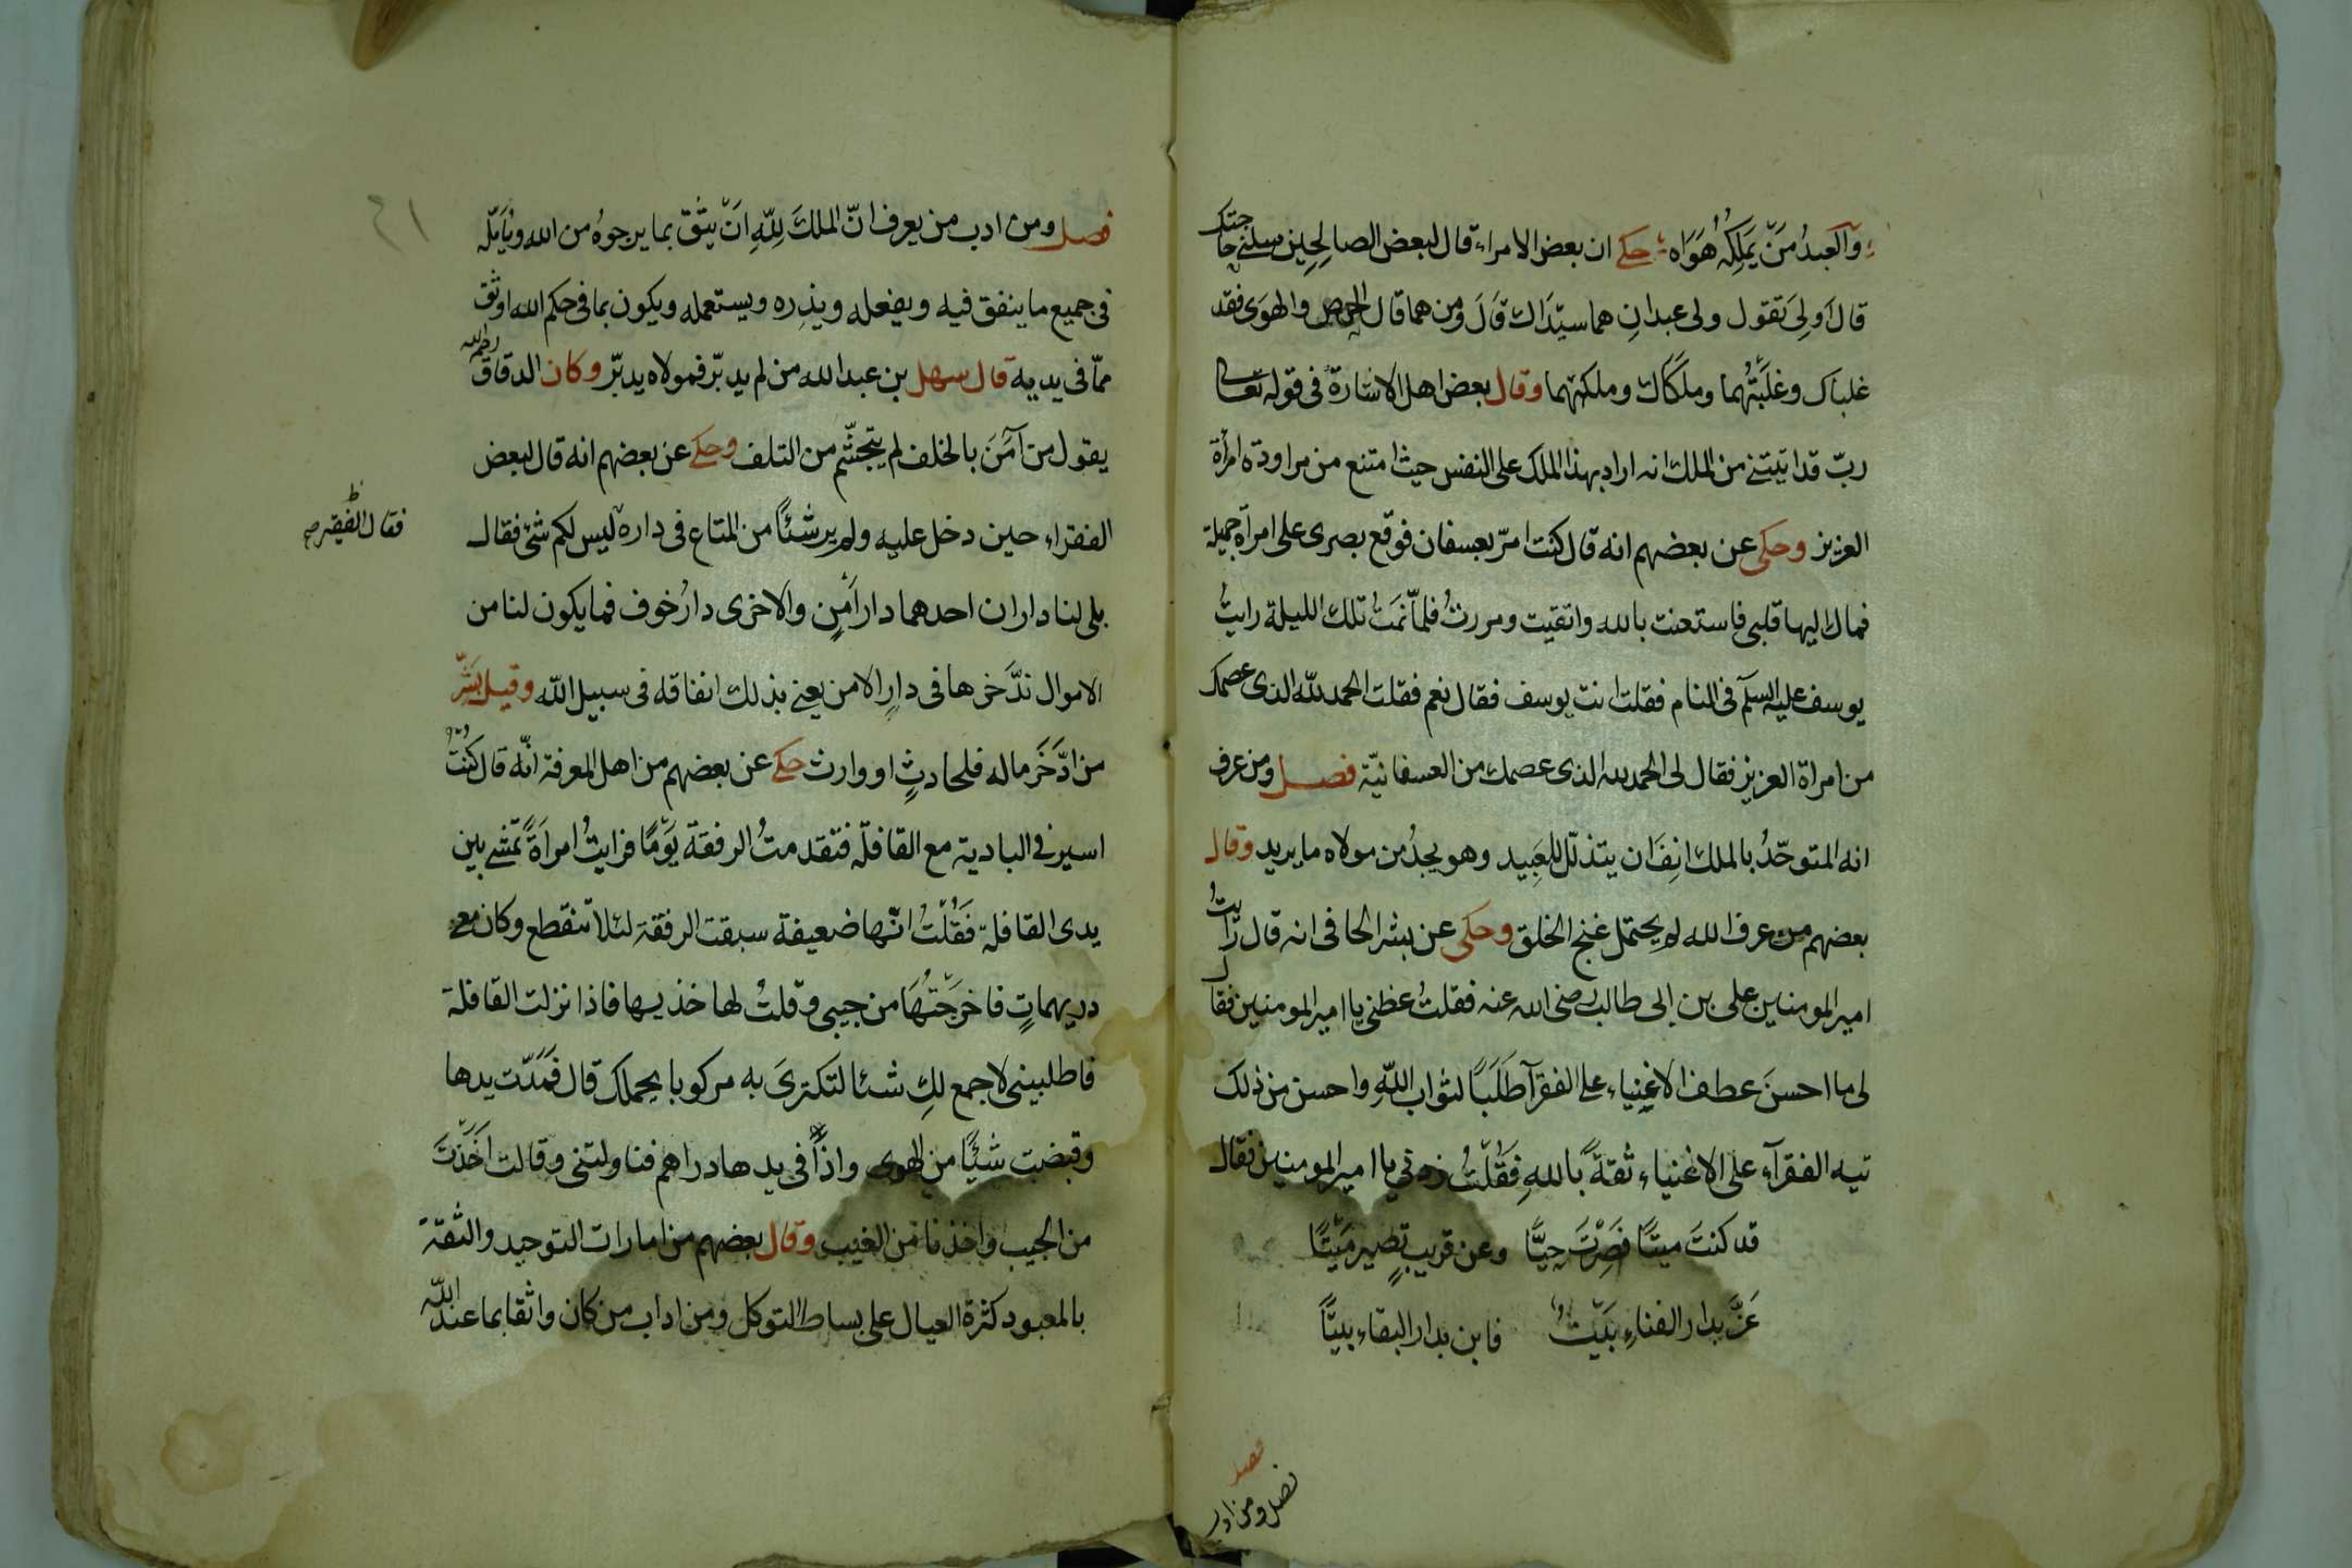 والعبدُ مَنْ يَملِكُهُ هَوَاه حكي ان بعض الامراء قال لبعض الصالحين سلني حاجتك
قال اَولي تقول ولى عبدانِ هما سيّداك قال ومن هما قال الحرص والهوى فقد
غلباك وغلبتُهما وملكاك وملكتهما وقال بعض اهل الاشارة فى قوله تعالى
ربّ قد اتيتني من الملك انه اراد بهذا الملك على النفس حيث امتنع من مراودة امرأة
العزيز وحكى عن بعضهم انه قال كنت امرّ بعسفان فوقع بصرى على امرأة جميلة
فمال اليها قلبى فاستعنت بالله واتقيت ومررتُ فلمّا نمتُ تلك الليلة رايتُ
يوسف عليه السلم فى المنام فقلت انت يوسف فقال نعم فقلت الحمد لله الذى عصمك
من امراة العزيز فقال لى الحمد لله الذى عصمك من العسفانيّة فصل ومن عرف
انه المتوحّدُ بالملك انِفَ ان يتذلّل للعَبِيد وهو يجدُ من مولاه ما يريد وقال
بعضهم من عرف الله لم يحتمل غنج الخلق وحكى عن بشر الحافى انه قال رأيتُ
امير المومنين على بن ابى طالب رضى الله عنه فقلتُ عظنى يا امير المومنين فقال
لى ما احسنَ عطف الاغنِياء على الفقرآ طَلَبًا لثواب اللّهِ واحسن من ذلك
تيه الفقرآء على الاغنياء ثقةً بالله فَقُلْتُ زدنى يا امير المومنين فقال
قد كنتَ ميتًا فَصِرْتَ حيًّا وعن قريبٍ تصير مَيْتًا
عَزَّ بدار الفناءِ بَيْتٌ فابن بدار البقاء بيتًا
فصل
فصل ومن ادب
٤١
فصل ومن ادب من يعرف انّ الملكَ لِلّهِ اَنْ يَثق بما يرجوهُ من الله ويُامّله
فى جميع ما ينفق فيه ويفعله ويذره ويستعمله ويكون بما فى حكم الله اوثق
ممّا فى يديه قال سهل بن عبد الله من لم يدبّر فمولاه يدبّر وكان الدقاق رحمه الله
يقول من آمَنَ بالخلف لم يتجشّم من التلف وحكي عن بعضهم انه قال لبعض
الفقراء حين دخل عليه ولم ير شئًا من المتاع فى داره ليس لكم شئ فقال
فقال الفقير صح
بلى لنا داران احدهما دار اَمْنٍ والاخرى دارُ خوف فما يكون لنا من
الاموال ندَّخرها فى دارِ الامن يعنى بذلك انفاقه فى سبيل اللّه وقيل بَشِّر
من ادَّخَر ماله فلحادثٍ او وارث حكي عن بعضهم من اهل المعرفة انّه قال كنتُ
اسير فى البادية مع القافلة فتقدمتُ الرفقة يَوْمًا فرايتُ امراَةً تمشي بين
يدى القافلة فَقُلْتُ انّها ضعيفة سبقت الرفقة لئلا تنقطع وكان معي
دريهماتٍ فاخرجتُهَا من جيبى وقلتُ لها خذيها فاذا نزلت القافلة
فاطلبينى لاجمع لكِ شئا لتكترىَ به مركوبا يحملك قال فَمَدّت يدها
وقبضت شَيْئًا من الهوى واذًا فى يدها دراهم فناولتنى وقالت اَخَذْتَ
من الجيب واخذنا من الغيب وقال بعضهم من امارات التوحيد والثقة
بالمعبود كثرة العيال على بساط التوكل ومن اداب من كان واثقا بما عند اللّه